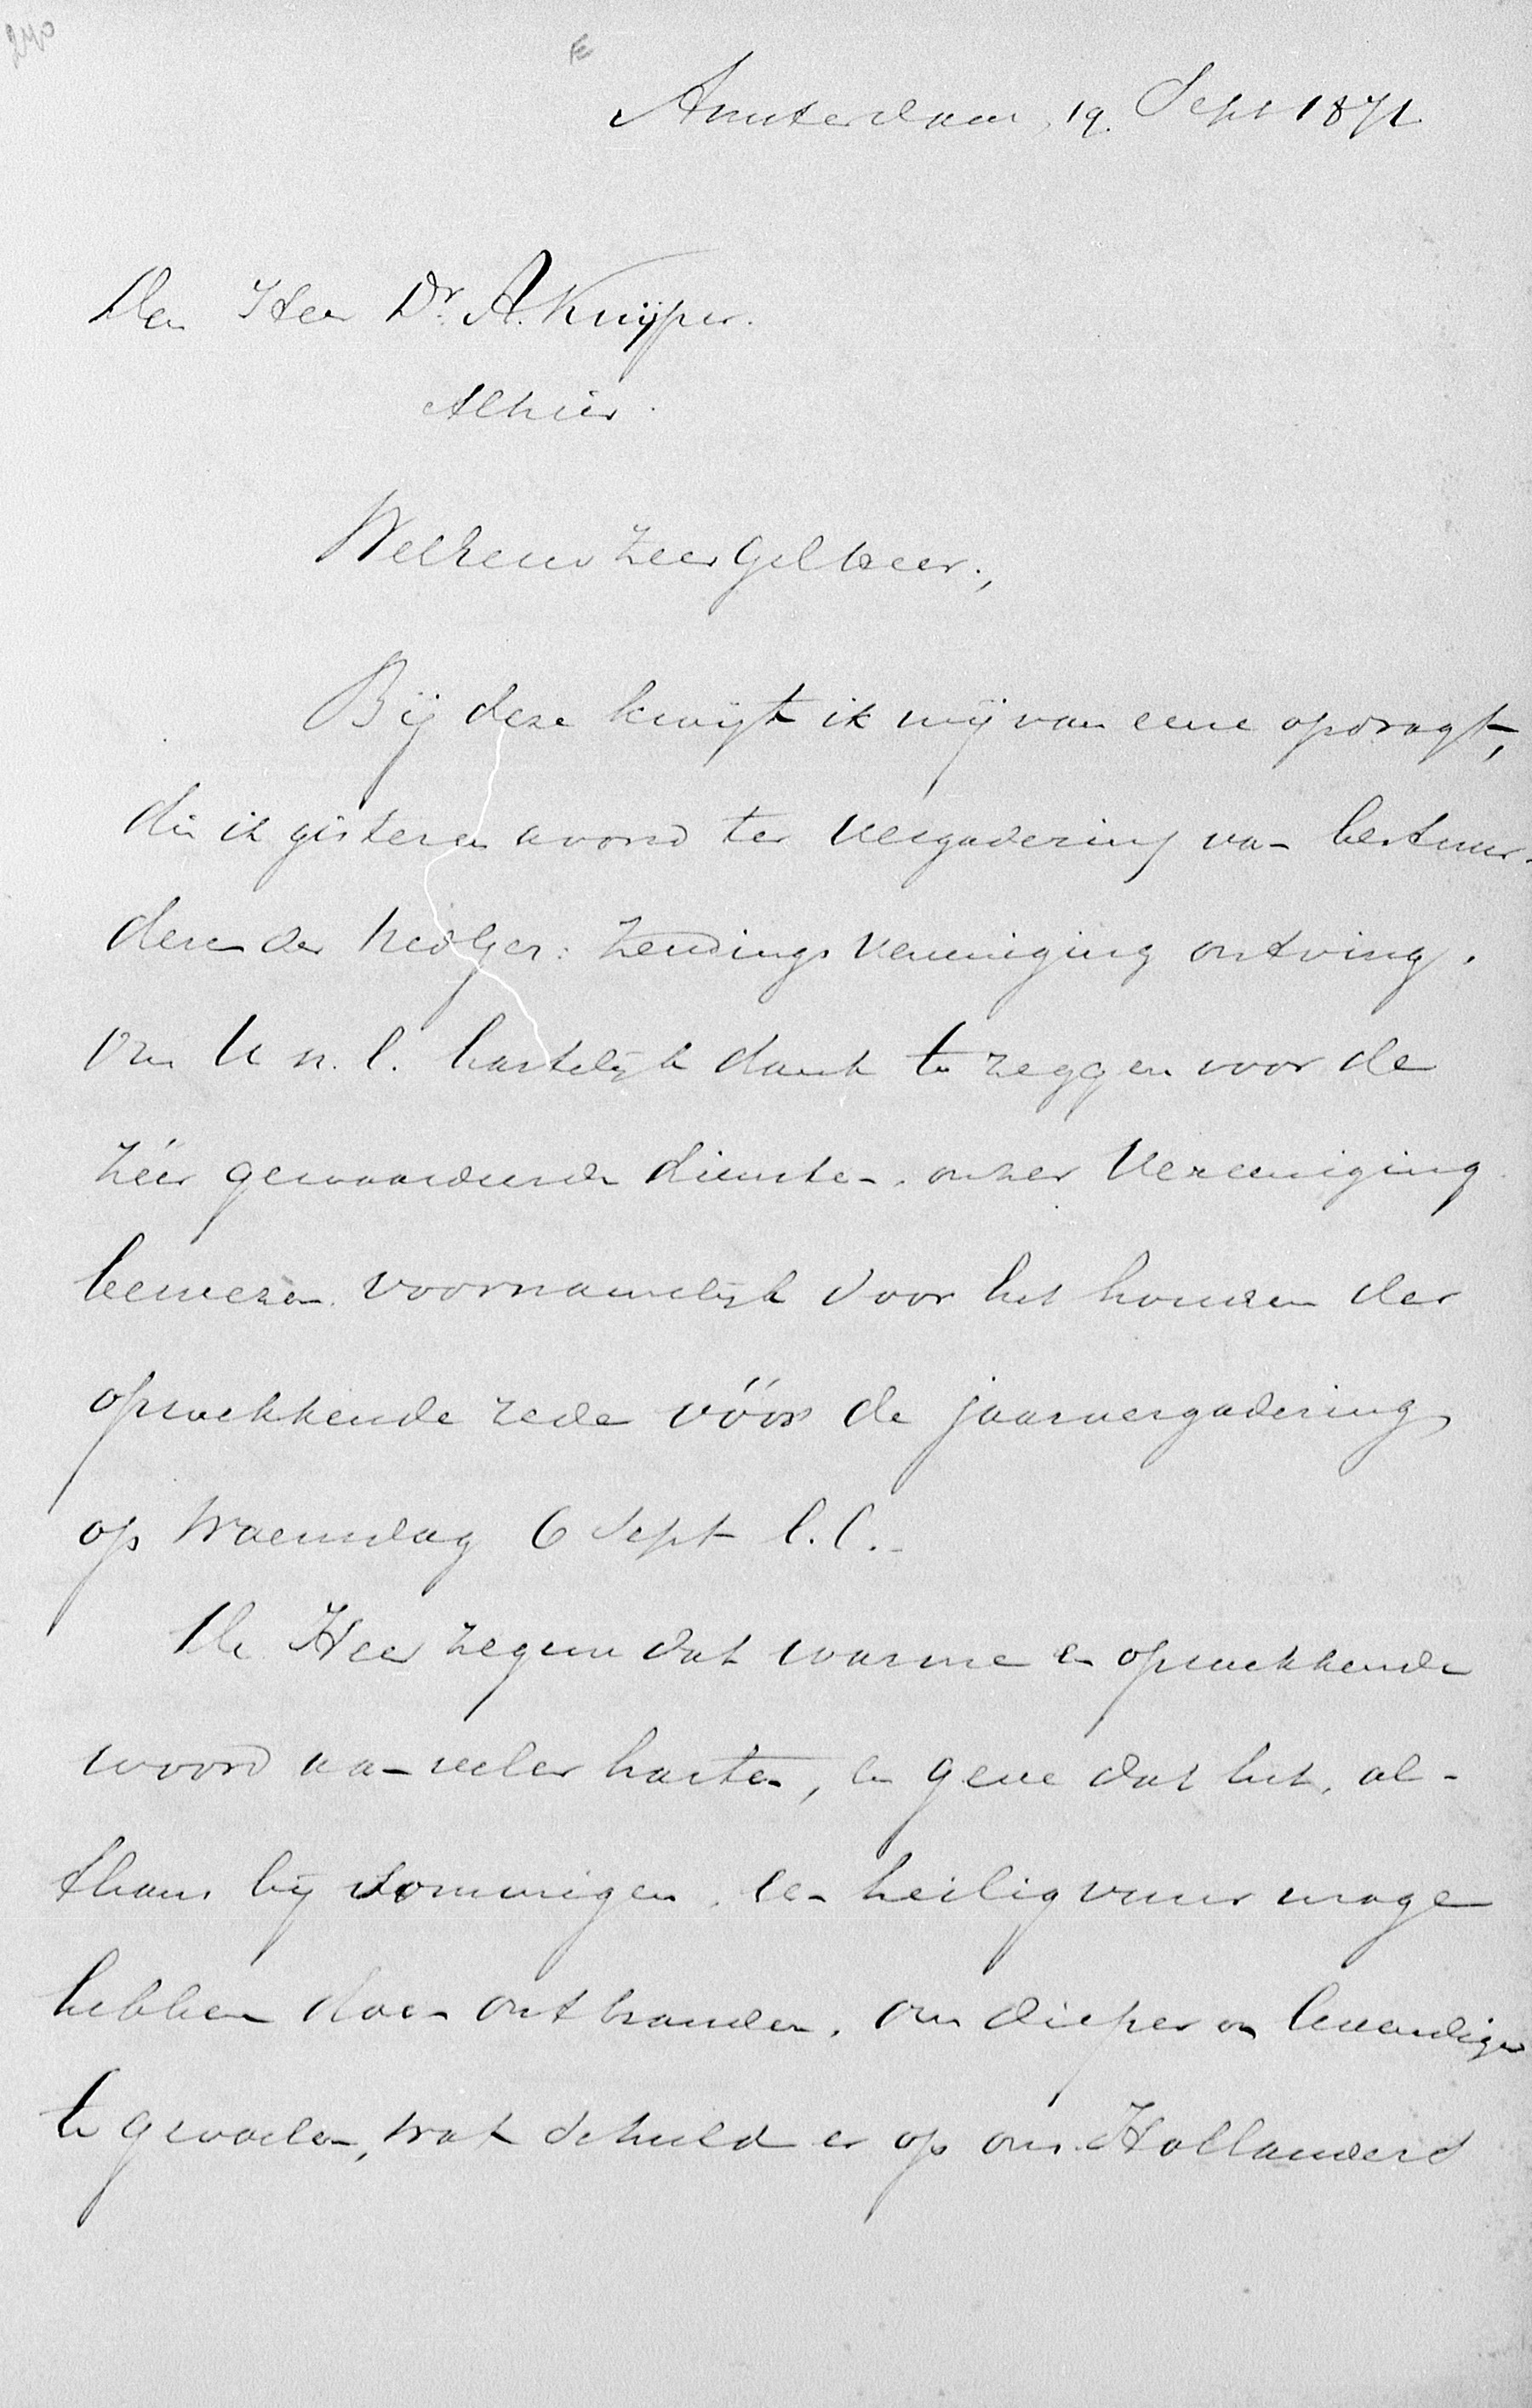 240
Amsterdam, 19. Sept 1871.
Den Heer Dr. A. Kuijper.
Alhier.
WelEerw ZeerGel Heer.,
Bij deze kwijt ik mij van eene opdragt,
die ik gisteren avond ter vergadering van bestuur-
deren der Nedger: Zendings Vereeniging ontving.
Om U n. l. hartelijk dank te zeggen voor de
zéér gewaardeerde diensten, onzer Vereeniging
bewezen, voornamelijk door het houden der
opwekkende rede vóór de jaarvergadering
op Woensdag 6 Sept l.l.-
De Heer zegene dat warme en opwekkende
woord aan veler harten, en geve dat het, al-
thans bij sommigen, een heilig vuur moge
hebben doen ontbranden, om dieper en levendiger
te gevoelen, wat schuld er op ons Hollanders